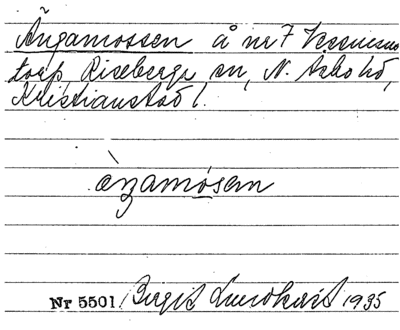 Ängamossen å nr 7
torp, Riseberga sn, N. Åsbo hd,
Kristianstad l.
àŋamósen
Nr 5501. Birgit Lundkvist 1935